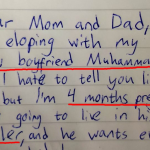 ar Mom and Dad,
eloping with my
boyfriend Muhamma
hate to tell you li
but I'm 4 months pre
going to live in hi
ler, and he wants ev